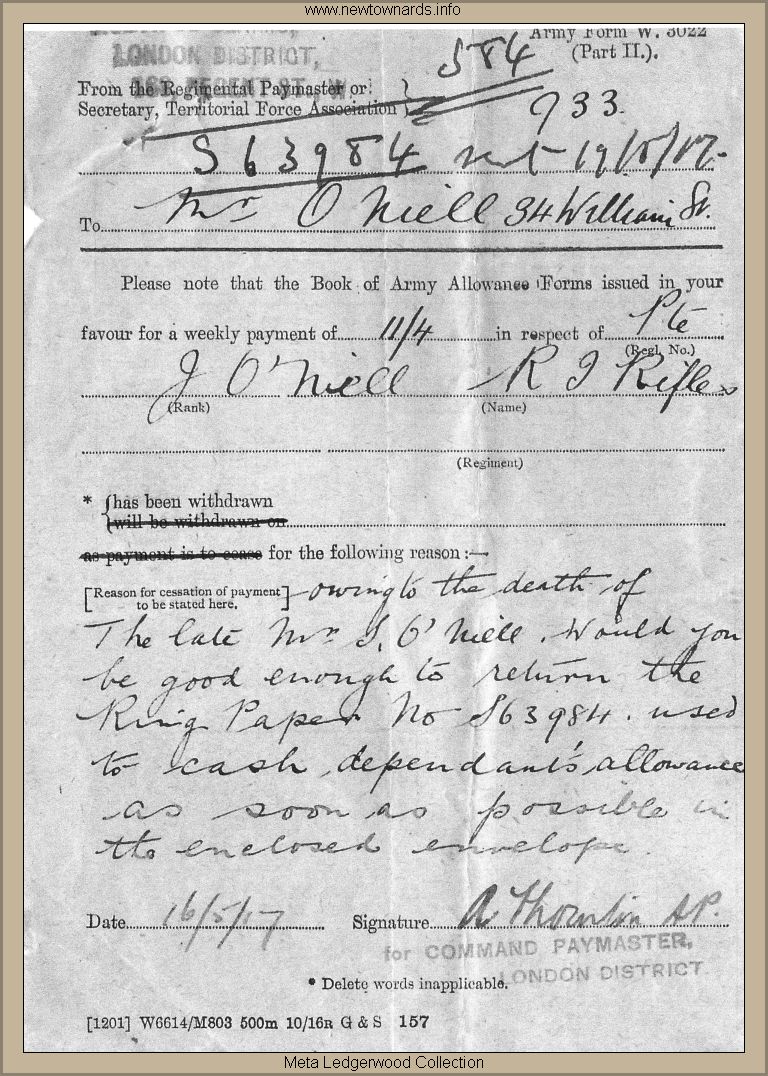 www.newtownards.info
LONDON DISTRICT,
Army Form W. 3022
(Part II.).
S84
From the Regimental Paymaster or
Secretary, Territorial Force Association
933.
S63984 sent 19/5/17.
To Mr O'Niell 34 William St.
Please note that the Book of Army Allowance Forms issued in your
favour for a weekly payment of 11/4 in respect of Pte
(Regl. No.)
J O'Niell R I Rifles
(Rank) (Name)
(Regiment)
* has been withdrawn
will be withdrawn on
as payment is to cease for the following reason :—
[Reason for cessation of payment to be stated here.] owing to the death of
The late Mrs S. O'Niell. Would you
be good enough to return the
Ring Paper No S63984. used
to cash dependant's allowance
as soon as possible in
the enclosed envelope.
Date 16/5/17 Signature A Thornton AP.
for COMMAND PAYMASTER,
LONDON DISTRICT
* Delete words inapplicable.
[1201] W6614/M803 500m 10/16R G & S 157
Meta Ledgerwood Collection